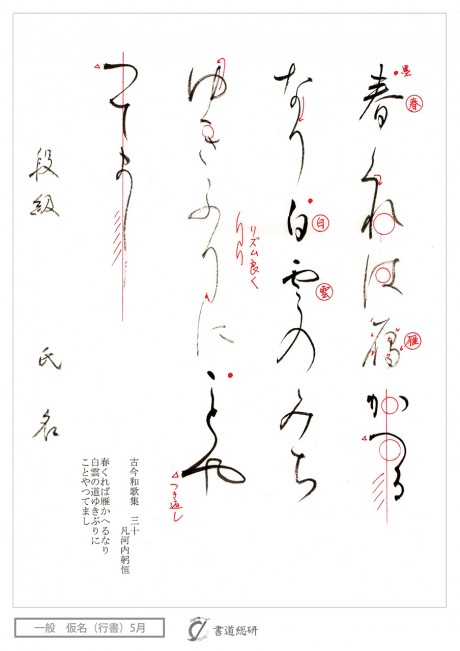 春くれは雁かへる
墨
春
雁
なり白雲のみち
白
雲
ゆきふりにことや
リズム良く
つき返し
つてまし
段級 氏名
古今和歌集 三十
凡河内躬恒
春くれば雁かへるなり
白雲の道ゆきぶりに
ことやつてまし
一般 仮名（行書）5月
書道総研